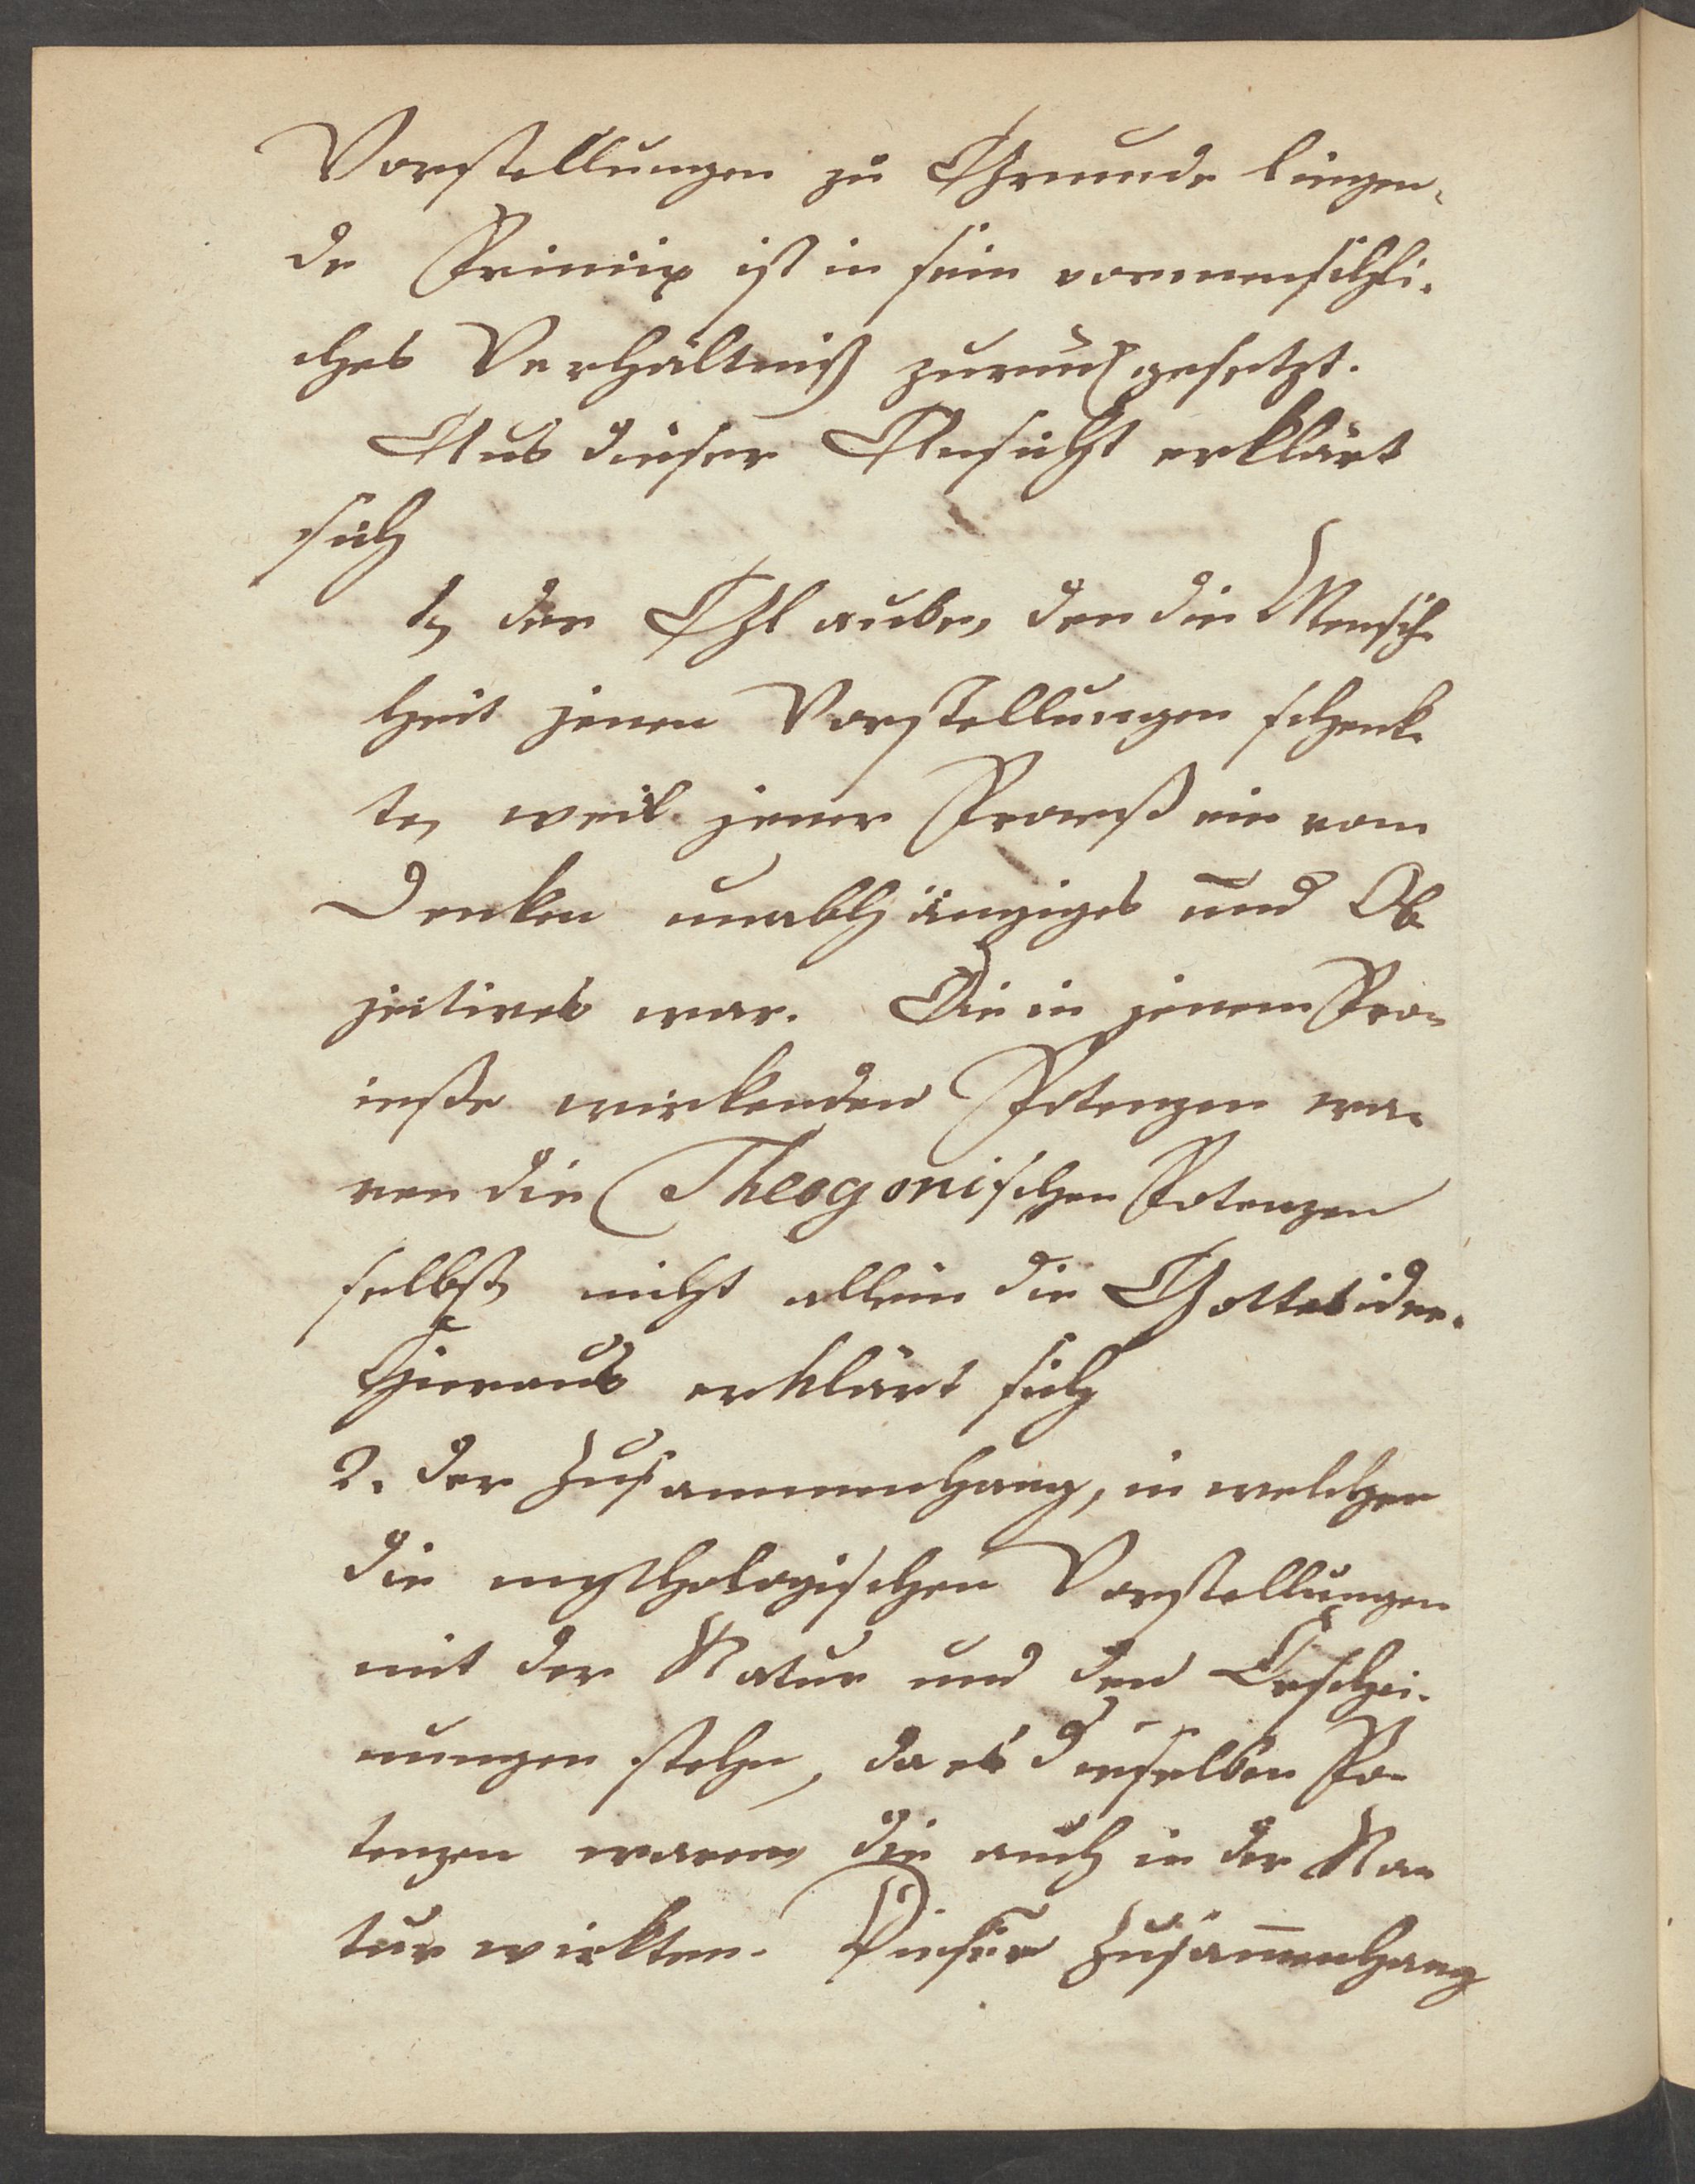 Vorstellungen zu Grunde liegen-
de Princip ist in sein vormenschli-
ches Verhältniß zurückgesetzt.
Aus dieser Ansicht erklärt
sich
1, der Glaube, den die Mensch-
heit jenen Vorstellungen schenk-
te, weil jener Proceß ein vom
Denken unabhängiges und Ob-
jectives war. Die in jenem Pro-
ceße wirkenden Potenzen wa-
ren die Theogonischen Potenzen
selbst, nicht allein die Gottesidee.
Hieraus erklärt sich
2. der Zusammenhang, in welchen
die mythologischen Vorstellungen
mit der Natur und den Erschei-
nungen stehen, da es dieselben Po-
tenzen waren, die auch in der Na-
tur wirkten. Dieser Zusam̅enhang